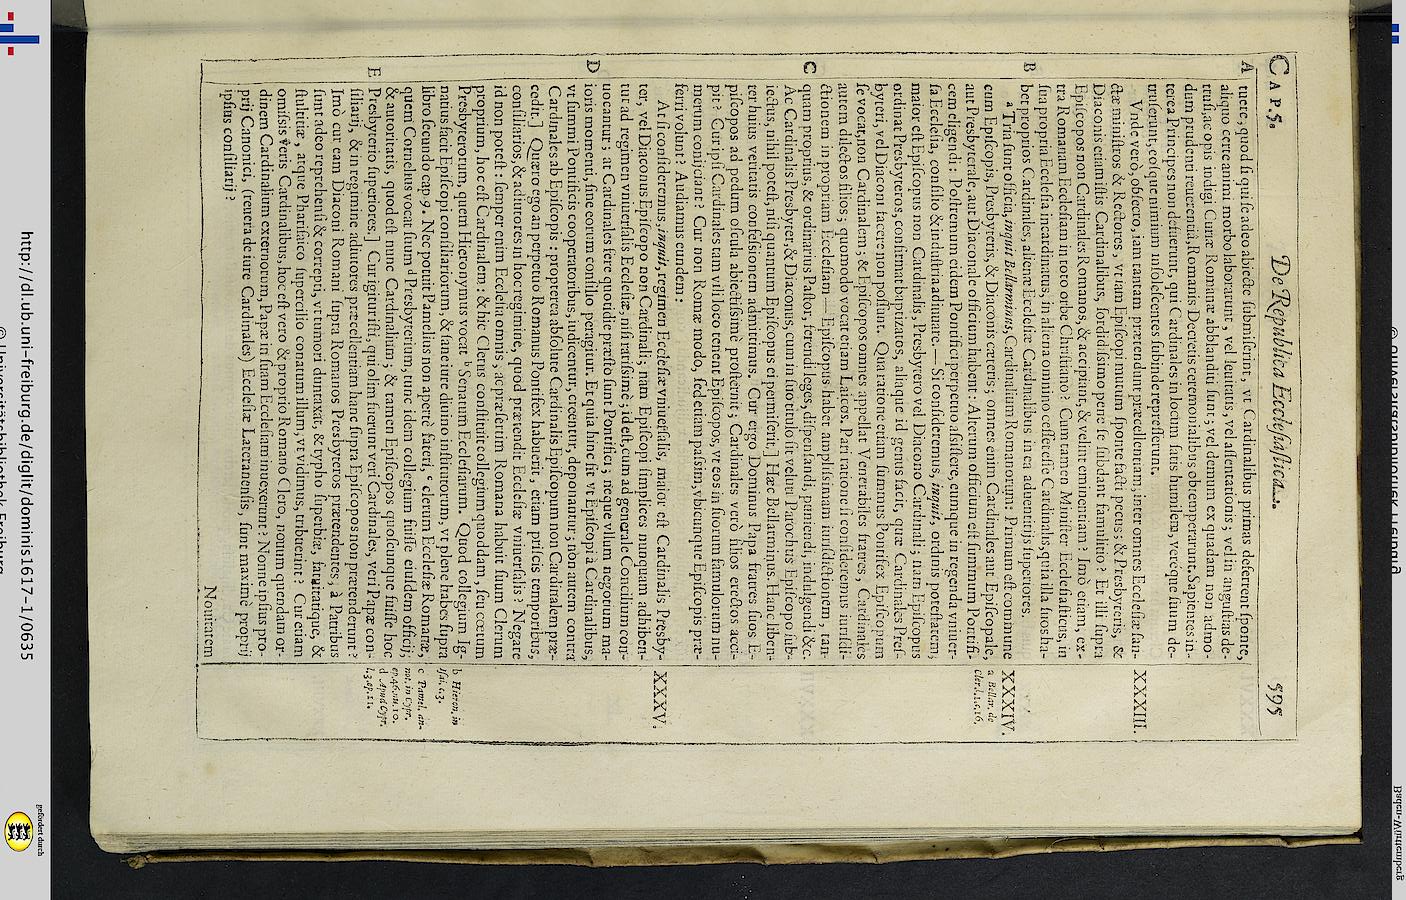 CAP. 5.
De Republica Ecclesiastica.
595
A tuere, quod si qui se adeo abiecte submiserint, vt Cardinalibus primas deferrent sponte,
aliquo certe animi morbo laborarunt, vel leuitatis, vel assentationis; vel in angustias de-
trusi, ac opis indigi Curiæ Romanæ abblanditi sunt; vel demum ex quadam non admo-
dum prudenti reuerentia, Romanis Decretis ceremonialibus obtemperarunt. Sapientes in-
terea Principes non defuerunt, qui Cardinales in locum satis humilem, veréque suum de-
truserunt, eosque nimium insolescentes subinde represserunt.
Vnde verò, obsecro, iam tantam prætendunt præcellentiam, inter omnes Ecclesiæ san-
XXXIII.
ctæ ministros & Rectores, vt tam Episcopi mutum sponte facti pecus; & Presbyteris, &
Diaconis etiam istis Cardinalibus, sordidissimo pene se subdant famulitio? Et illi supra
Episcopos non Cardinales Romanos, & accipiant, & velint eminentiam? Imò etiam, ex-
tra Romanam Ecclesiam in toto orbe Christiano? Cum tamen Minister Ecclesiasticus, in
sua propria Ecclesia incardinatus, in aliena omnino cesset esse Cardinalis, quia illa suos ha-
B bet proprios Cardinales, alienæ Ecclesiæ Cardinalibus in ea aduentitijs superiores.
a Tria sunt officia, inquit Bellarminus, Cardinalium Romanorum: Primum est commune
XXXIV.
cum Episcopis, Presbyteris, & Diaconis cæteris; omnes enim Cardinales aut Episcopale,
a Bellar. de
aut Presbyterale, aut Diaconale officium habent: Alterum officium est summum Pontifi-
Cler. l. 1. c. 16.
cem eligendi: Postremum eidem Pontifici perpetuo assistere, eumque in regenda vniuer-
sa Ecclesia, consilio & industria adiuuare.— Si consideremus, inquit, ordinis potestatem;
maior est Episcopus non Cardinalis, Presbytero vel Diacono Cardinali; nam Episcopus
ordinat Presbyteros, confirmat baptizatos, aliaque id genus facit, quæ Cardinales Pres-
byteri, vel Diaconi facere non possunt. Qua ratione etiam summus Pontifex Episcopum
se vocat, non Cardinalem; & Episcopos omnes appellat Venerabiles fratres, Cardinales
autem dilectos filios; quomodo vocat etiam Laicos. Pari ratione si consideremus iurisdi-
ctionem in propriam Ecclesiam — Episcopus habet amplissimam iurisdictionem, tan-
C quam proprius, & ordinarius Pastor, ferendi leges, dispensandi, puniendi, indulgendi &c.
Ac Cardinalis Presbyter, & Diaconus, cum in suo titulo sit veluti Parochus Episcopo sub-
iectus, nihil potest, nisi quantum Episcopus ei permiserit.] Hæc Bellarminus. Hanc liben-
ter huius veritatis confessionem admittimus. Cur ergo Dominus Papa fratres suos E-
piscopos ad pedum oscula abiectissimè prosternit; Cardinales verò filios erectos acci-
pit? Cur ipsi Cardinales tam vili loco tenent Episcopos, vt eos in suorum famulorum nu-
merum conijciant? Cur non Romæ modo, sed etiam passim, vbicunque Episcopis præ-
ferri volunt? Audiamus eundem:
At si consideremus, inquit, regimen Ecclesiæ vniuersalis, maior est Cardinalis Presby-
XXXV.
ter, vel Diaconus Episcopo non Cardinali; nam Episcopi simplices nunquam adhiben-
tur ad regimen vniuersalis Ecclesiæ, nisi rarissimè; id est, cum ad generale Concilium con-
uocantur: at Cardinales ferè quotidie præsto sunt Pontifici; neque vllum negotium ma-
D ioris momenti, sine eorum consilio peragitur. Et quia hinc fit vt Episcopi à Cardinalibus,
vt summi Pontificis cooperatoribus, iudicentur, creentur, deponantur; non autem contra
Cardinales ab Episcopis: propterea absolute Cardinalis Episcopum non Cardinalem præ-
cedit.] Quæro ego an perpetuo Romanus Pontifex habuerit, etiam priscis temporibus,
consiliarios, & adiutores in hoc regimine, quod prætendit Ecclesiæ vniuersalis? Negare
id non potest: semper enim Ecclesia omnis, ac præsertim Romana habuit suum Clerum
proprium, hoc est Cardinalem: & hic Clerus constituit collegium quoddam, seu cœtum
Presbyterorum, quem Hieronymus vocat b Senatum Ecclesiarum. Quod collegium Ig-
b Hieron. in
natius facit Episcopi consiliariorum, & sanciure diuino institutorum, vt plene habes supra
Isai. c. 3.
libro secundo cap. 9. Nec potuit Pamelius non apertè fateri, c clerum Ecclesiæ Romanæ,
c Pamel. an-
quem Cornelius vocat suum d Presbyterium, tunc idem collegium fuisse eiusdem officij,
not. in Cypr.
& autoritatis, quod est nunc Cardinalium; & tamen Episcopos quoscunque fuisse hoc
ep. 46. nu. 10.
E Presbyterio superiores.] Cur igitur isti, qui olim fuerunt veri Cardinales, veri Papæ con-
d Apud Cypr.
siliarij, & in regimine adiutores præcellentiam hanc supra Episcopos non prætenderunt?
l. 3. ep. 11.
Imò cur cum Diaconi Romani supra Romanos Presbyteros prætendentes, à Patribus
sunt adeo reprehensi & correpti, vt tumori duntaxat, & typho superbiæ, fatuitatique, &
stultitiæ, atque Pharisaico supercilio conatum illum, vt vidimus, tribuerint? Cur etiam
omissis veris Cardinalibus, hoc est vero & proprio Romano Clero, nouum quendam or-
dinem Cardinalium externorum, Papæ in suam Ecclesiam inuexerunt? Nonne ipsius pro-
prij Canonici, (reuera de iure Cardinales) Ecclesiæ Lateranensis, sunt maximè proprij
ipsius consiliarij?
Nouitatem
http://dl.ub.uni-freiburg.de/diglit/dominis1617-1/0635
© Universitätsbibliothek Freiburg
gefördert durch